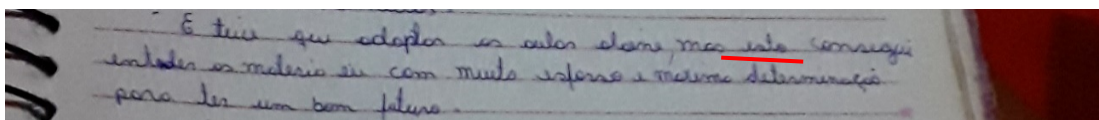 E tive que adaptar as aulas olaine mas esta consegui
entender as materia eu com muito esforso e mesmo determinação
para ter um bom futuro.